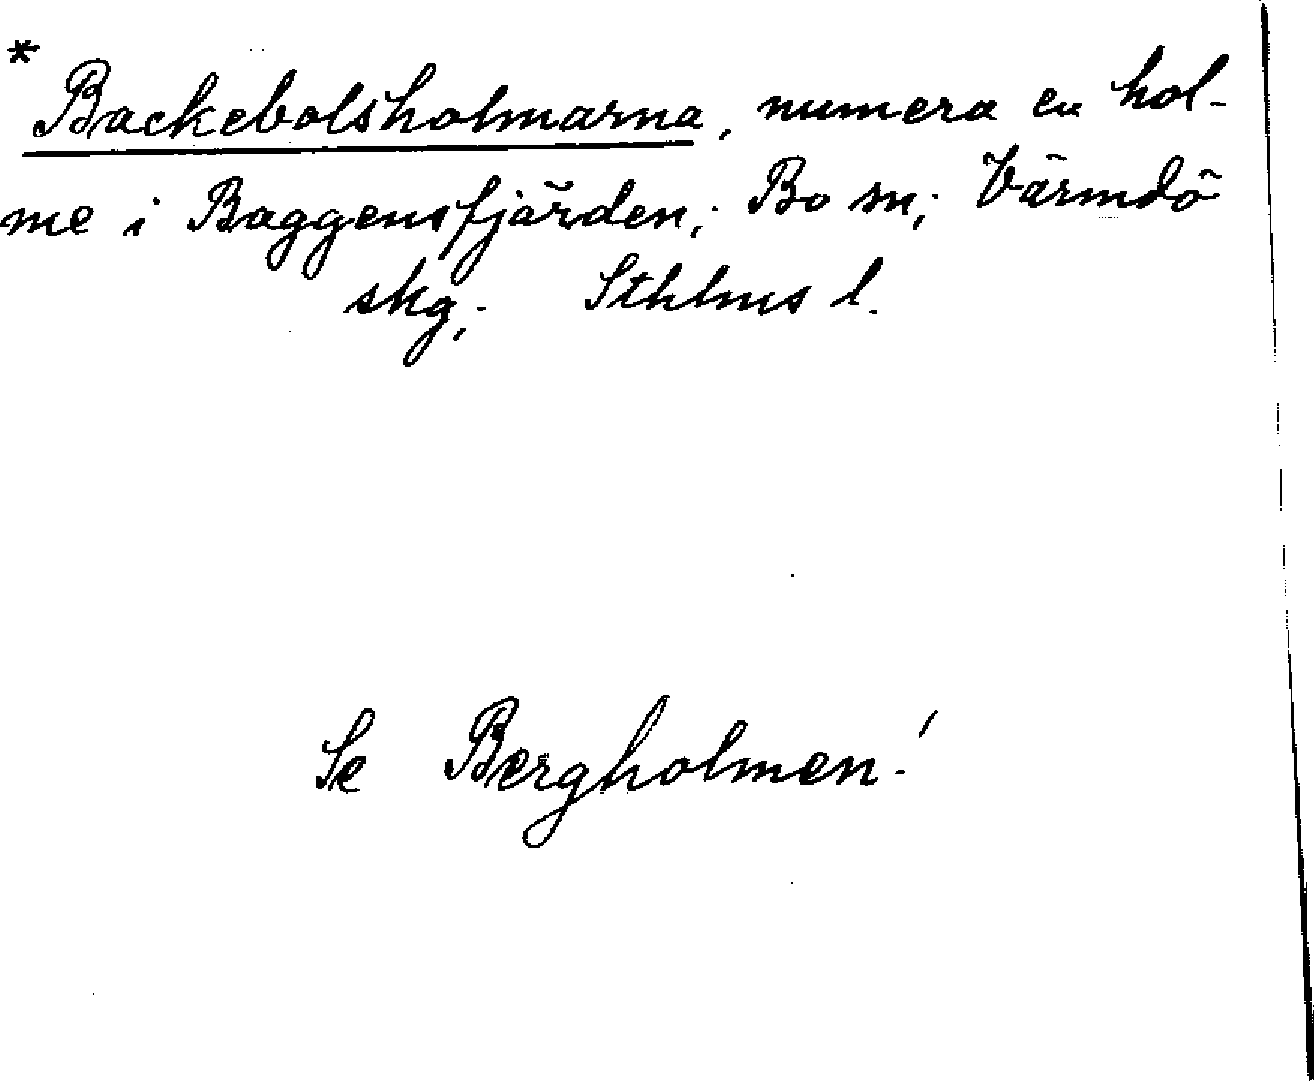 * Backebolsholmarna, numera en hol-
me i Baggensfjärden; Bo sn; Värmdö
skg; Sthlms l.
Se Bergholmen!